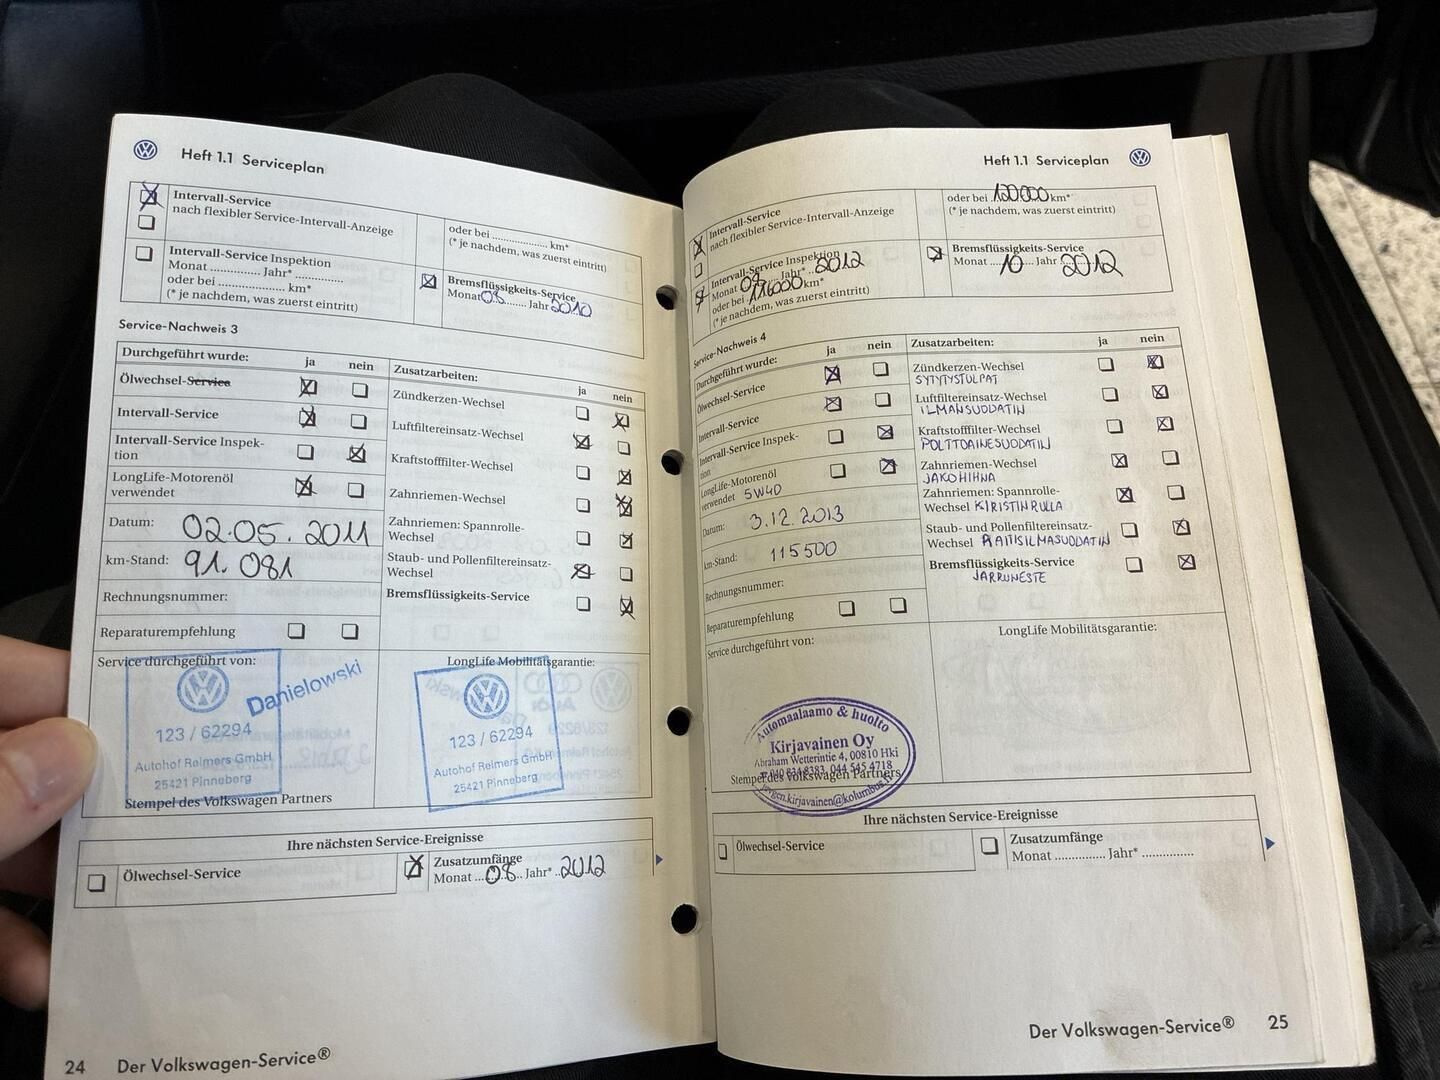 Heft 1.1 Serviceplan
Intervall-Service
nach flexibler Service-Intervall-Anzeige
oder bei .................. km*
(* je nachdem, was zuerst eintritt)
Intervall-Service Inspektion
Monat .............. Jahr* .............
oder bei .................. km*
(* je nachdem, was zuerst eintritt)
Bremsflüssigkeits-Service
Monat 08 ........ Jahr 2010
Service-Nachweis 3
Durchgeführt wurde: ja nein
Ölwechsel-Service
Intervall-Service
Intervall-Service Inspek-
tion
LongLife-Motorenöl
verwendet
Datum: 02.05.2011
km-Stand: 91.081
Rechnungsnummer:
Reparaturempfehlung
Zusatzarbeiten: ja nein
Zündkerzen-Wechsel
Luftfiltereinsatz-Wechsel
Kraftstofffilter-Wechsel
Zahnriemen-Wechsel
Zahnriemen: Spannrolle-
Wechsel
Staub- und Pollenfiltereinsatz-
Wechsel
Bremsflüssigkeits-Service
Service durchgeführt von:
Danielowski
123 / 62294
Autohof Reimers GmbH
25421 Pinneberg
Stempel des Volkswagen Partners
LongLife Mobilitätsgarantie:
123 / 62294
Autohof Reimers GmbH
25421 Pinneberg
Ihre nächsten Service-Ereignisse
Ölwechsel-Service
Zusatzumfänge
Monat ...08... Jahr* ..2012
24 Der Volkswagen-Service®
Heft 1.1 Serviceplan
Intervall-Service
nach flexibler Service-Intervall-Anzeige
oder bei 120.000 km*
(* je nachdem, was zuerst eintritt)
Intervall-Service Inspektion
Monat 08 .... Jahr* .. 2012
oder bei 116000 km*
(* je nachdem, was zuerst eintritt)
Bremsflüssigkeits-Service
Monat 10 Jahr 2012
Service-Nachweis 4
Durchgeführt wurde: ja nein
Ölwechsel-Service
Intervall-Service
Intervall-Service Inspek-
tion
LongLife-Motorenöl
verwendet 5W40
Datum: 3.12.2013
km-Stand: 115500
Rechnungsnummer:
Reparaturempfehlung
Zusatzarbeiten: ja nein
Zündkerzen-Wechsel
SYTYTYSTULPAT
Luftfiltereinsatz-Wechsel
ILMANSUODATIN
Kraftstofffilter-Wechsel
POLTTOAINESUODATIN
Zahnriemen-Wechsel
JAKOHIHNA
Zahnriemen: Spannrolle-
Wechsel KIRISTINRULLA
Staub- und Pollenfiltereinsatz-
Wechsel RAITISILMASUODATIN
Bremsflüssigkeits-Service
JARRUNESTE
Service durchgeführt von:
Automaalaamo & huolto
Kirjavainen Oy
Abraham Wetterintie 4, 00810 Hki
044 545 4718
Stempel des Volkswagen Partners
LongLife Mobilitätsgarantie:
Ihre nächsten Service-Ereignisse
Ölwechsel-Service
Zusatzumfänge
Monat .............. Jahr* ..............
Der Volkswagen-Service® 25